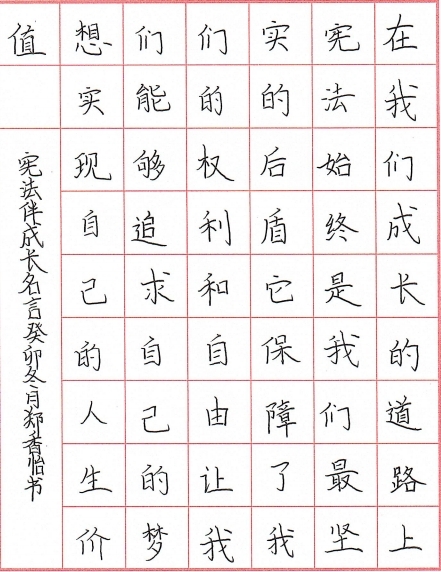 在我们成长的道路上
宪法始终是我们最坚
实的后盾它保障了我
们的权利和自由让我
们能够追求自己的梦
想实现自己的人生价
值
宪法伴成长名言癸卯冬月郑香怡书